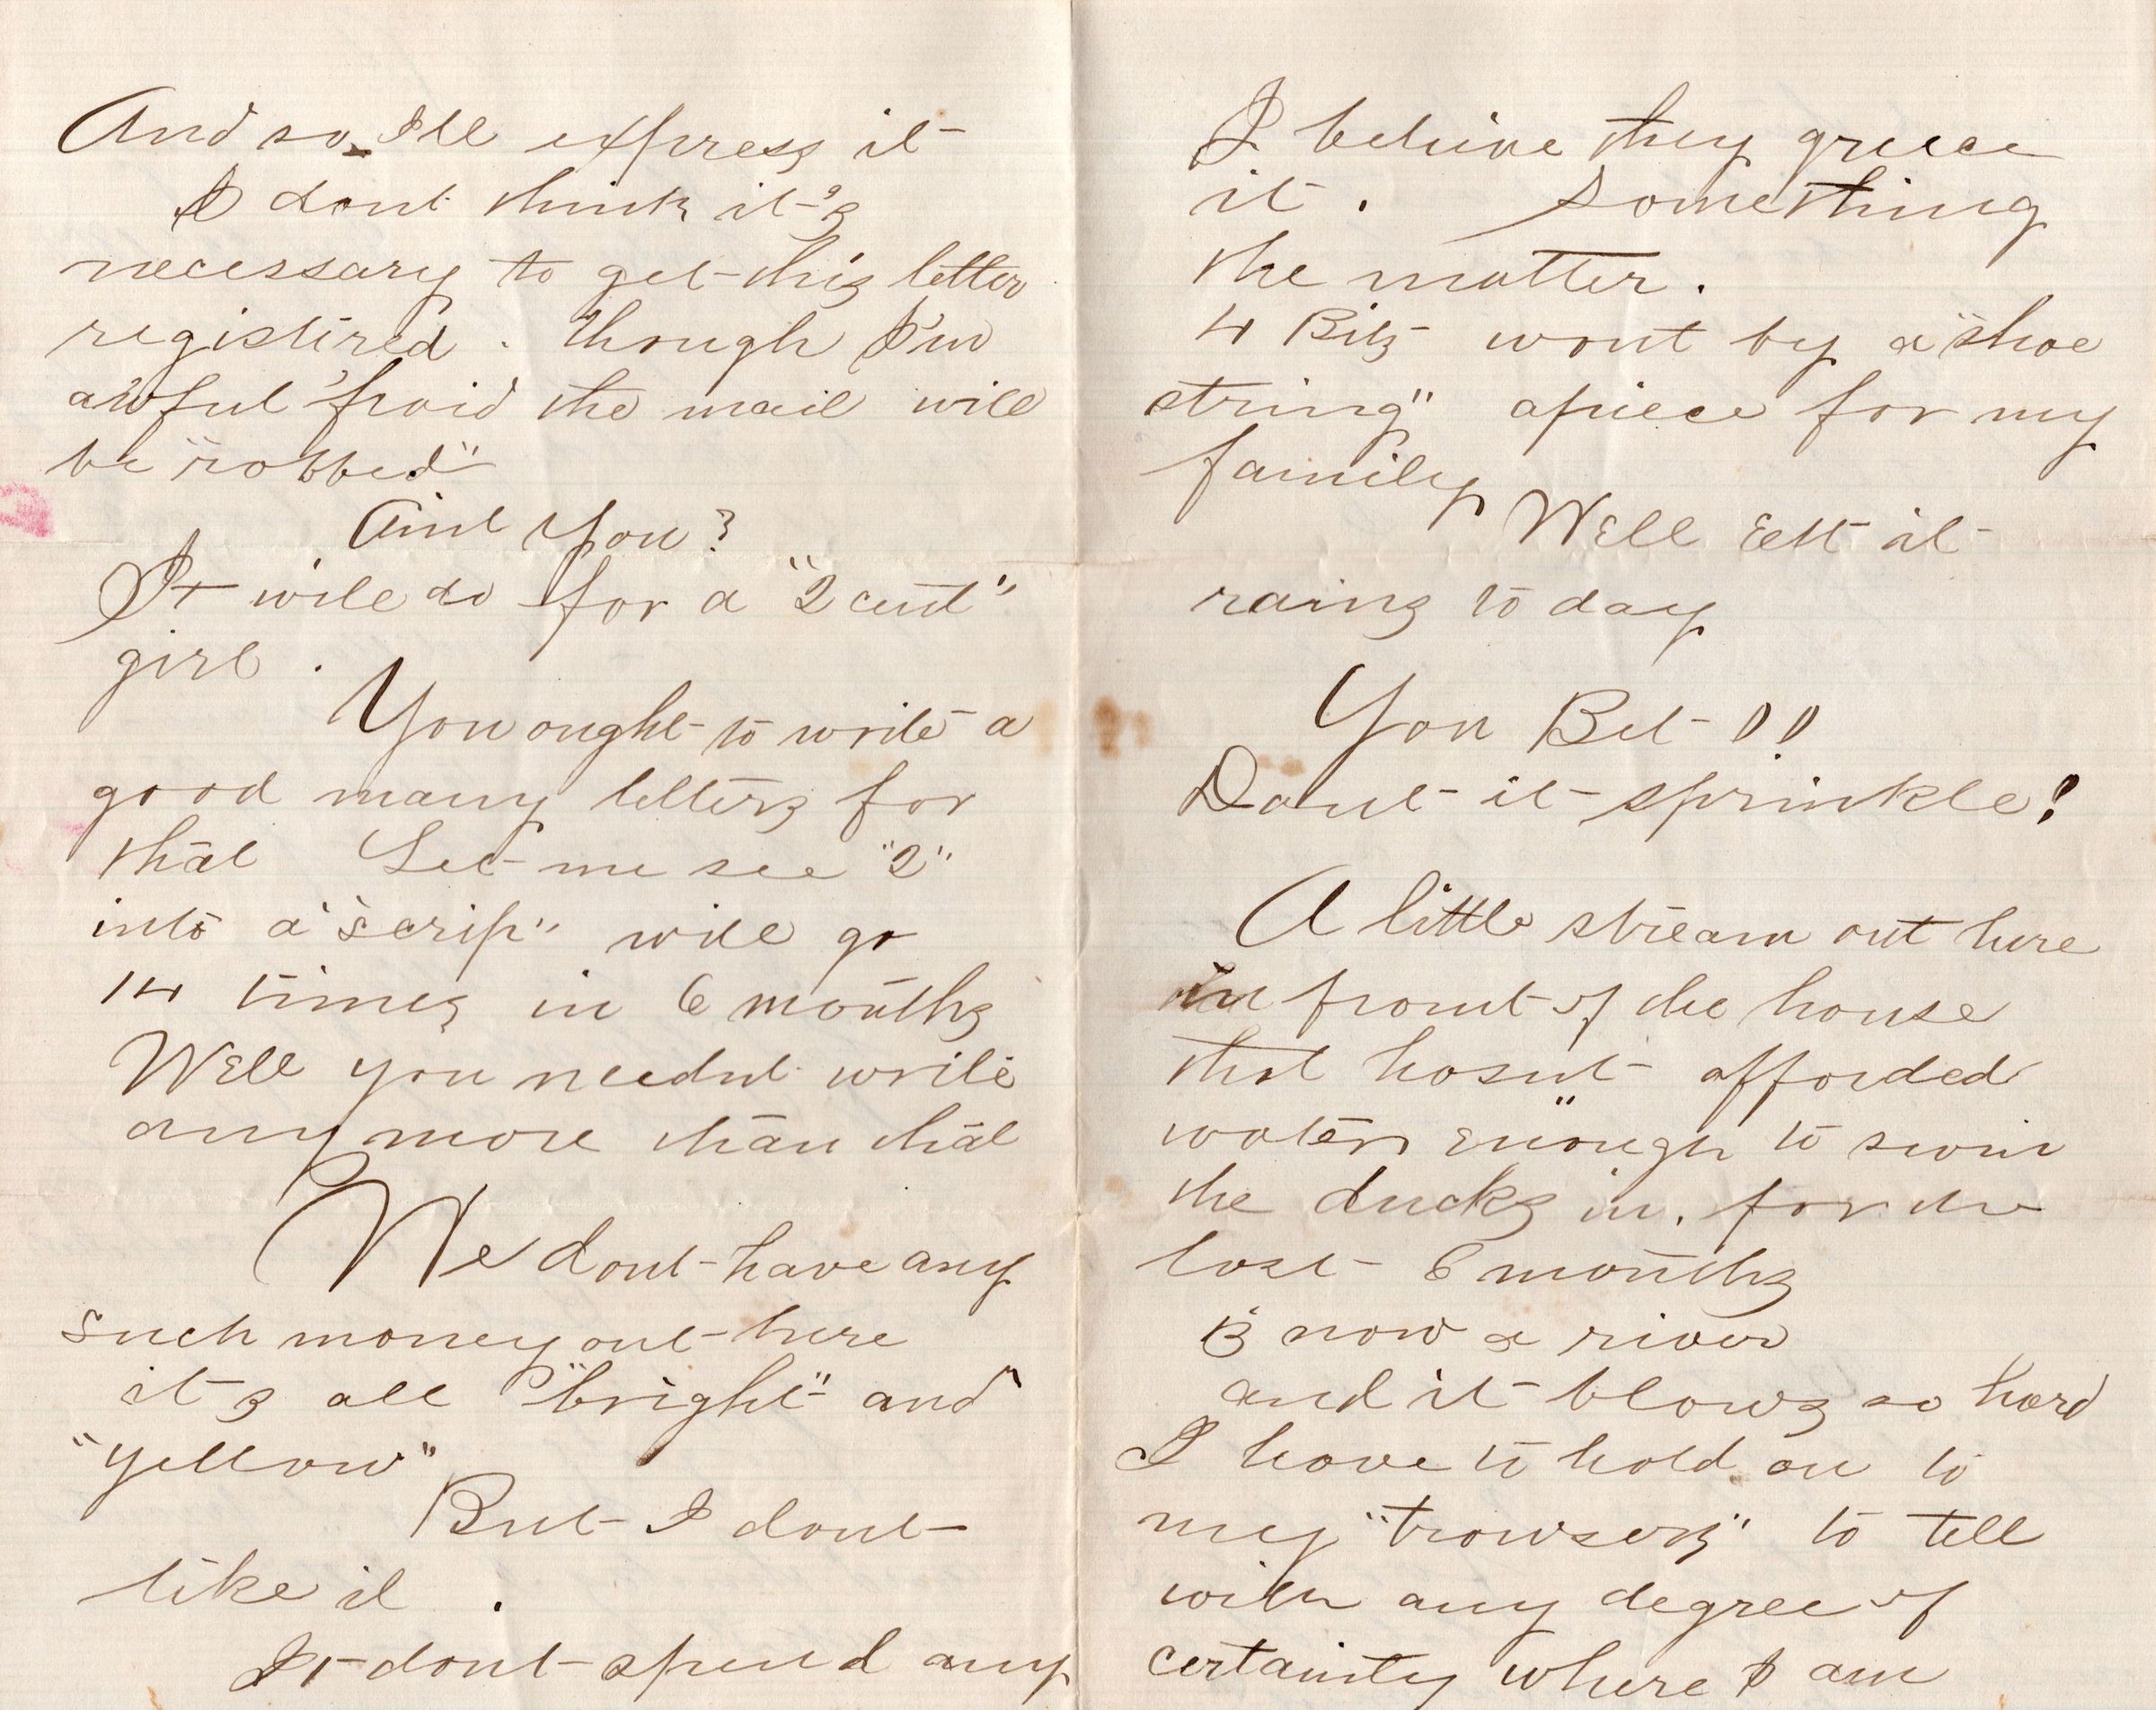 And so I'll express it
I dont think it's
necessary to get this letter
registired. though I'm
awful 'fraid the mail will
be "robbed"
Aint you?
It will do for a "2 cent"
girl.
You ought to write a
good many letters for
that Let me see "2"
into a "scrip" will go
14 times in 6 months
Well you neednt write
any more than that
We dont have any
such money out here
its all "bright" and
"yellow"
But I dont
like it.
It dont spend any
I believe they greece
it. Something
the matter.
4 Bits wont by a "shoe
string" apiece for my
family
Well Ett it
rains to day
You Bet!!
Dont it sprinkle!
A little stream out here
in front of the house
that hasnt afforded
water enough to swim
the ducks in, for the
last 6 months
is now a river
and it blows so hard
I have to hold on to
my "trowsers" to tell
with any degree of
certainty where I am